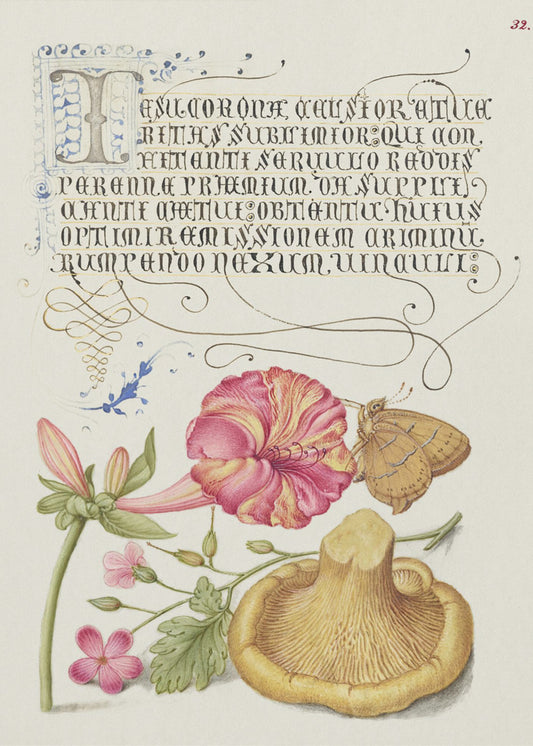 32.
IESU CORONA, CELSIOR ET UE
RITAS SUBLIMIOR: QUI CON
FITENTI SERUULO REDDIS
PERENNE PRÆMIUM. DA SUPPLI
CANTI CÆTUI: OBTENTU HUIUS
OPTIMI REMISSIONEM CRIMINU
RUMPENDO NEXUM, UINCULI: